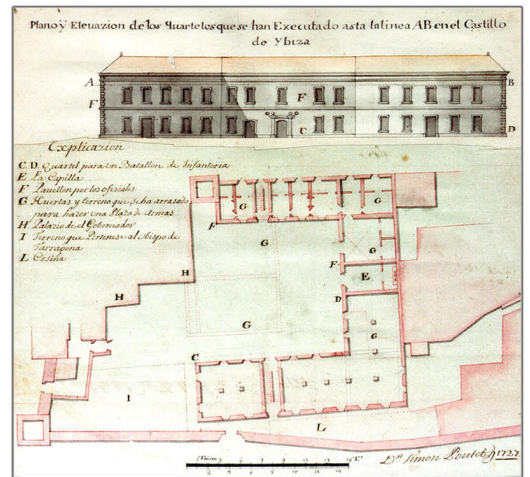 Plano y Elevazion de los Quarteles que se han Executado asta la linea AB en el Castillo
de Ybiza
A
B
F
F
C
D
Explicazion
C D Quartel para un Batallon de Infanteria
E La Capilla
F Pavillon por los ofiziales
G Huertas y terreno que se ha arrasado
para hazer una Plaza de Armas
H Palazio de el Gobernador
I Terreno que Pertenese al obispo de
Tarragona
L Cosina
G
G
F
G
G
F
E
H
H
D
G
G
C
I
L
Dn Simon Poulet 1727